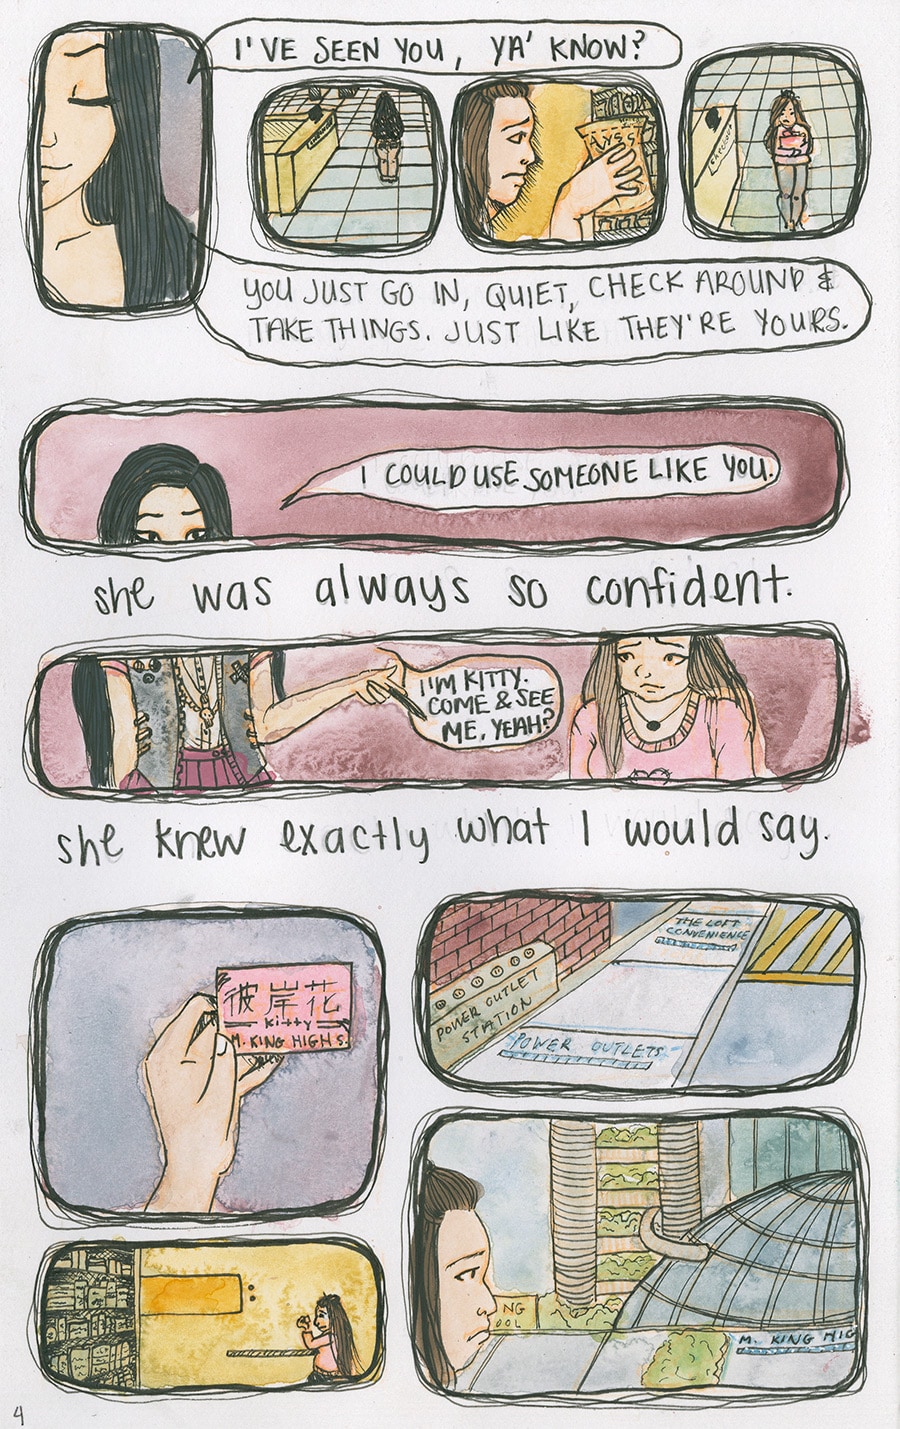 I'VE SEEN YOU, YA' KNOW?
YOU JUST GO IN, QUIET, CHECK AROUND &
TAKE THINGS. JUST LIKE THEY'RE YOURS.
I COULD USE SOMEONE LIKE YOU.
she was always so confident.
I'M KITTY.
COME & SEE
ME, YEAH?
she knew exactly what I would say.
彼岸花
Kitty
M. KING HIGH S.
THE LOFT
CONVENIENCE
POWER OUTLET
STATION
POWER OUTLETS
NG
OOL
M. KING HIG
4